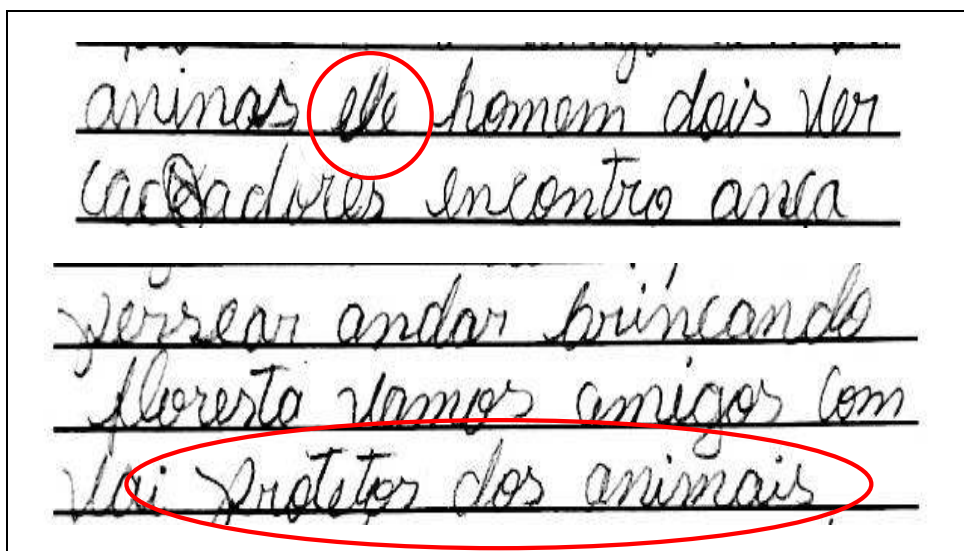 aninas ele homem dois ver
cacadores encontro
andar brincando
floresta vamos amigos com
vai protetos dos animais.